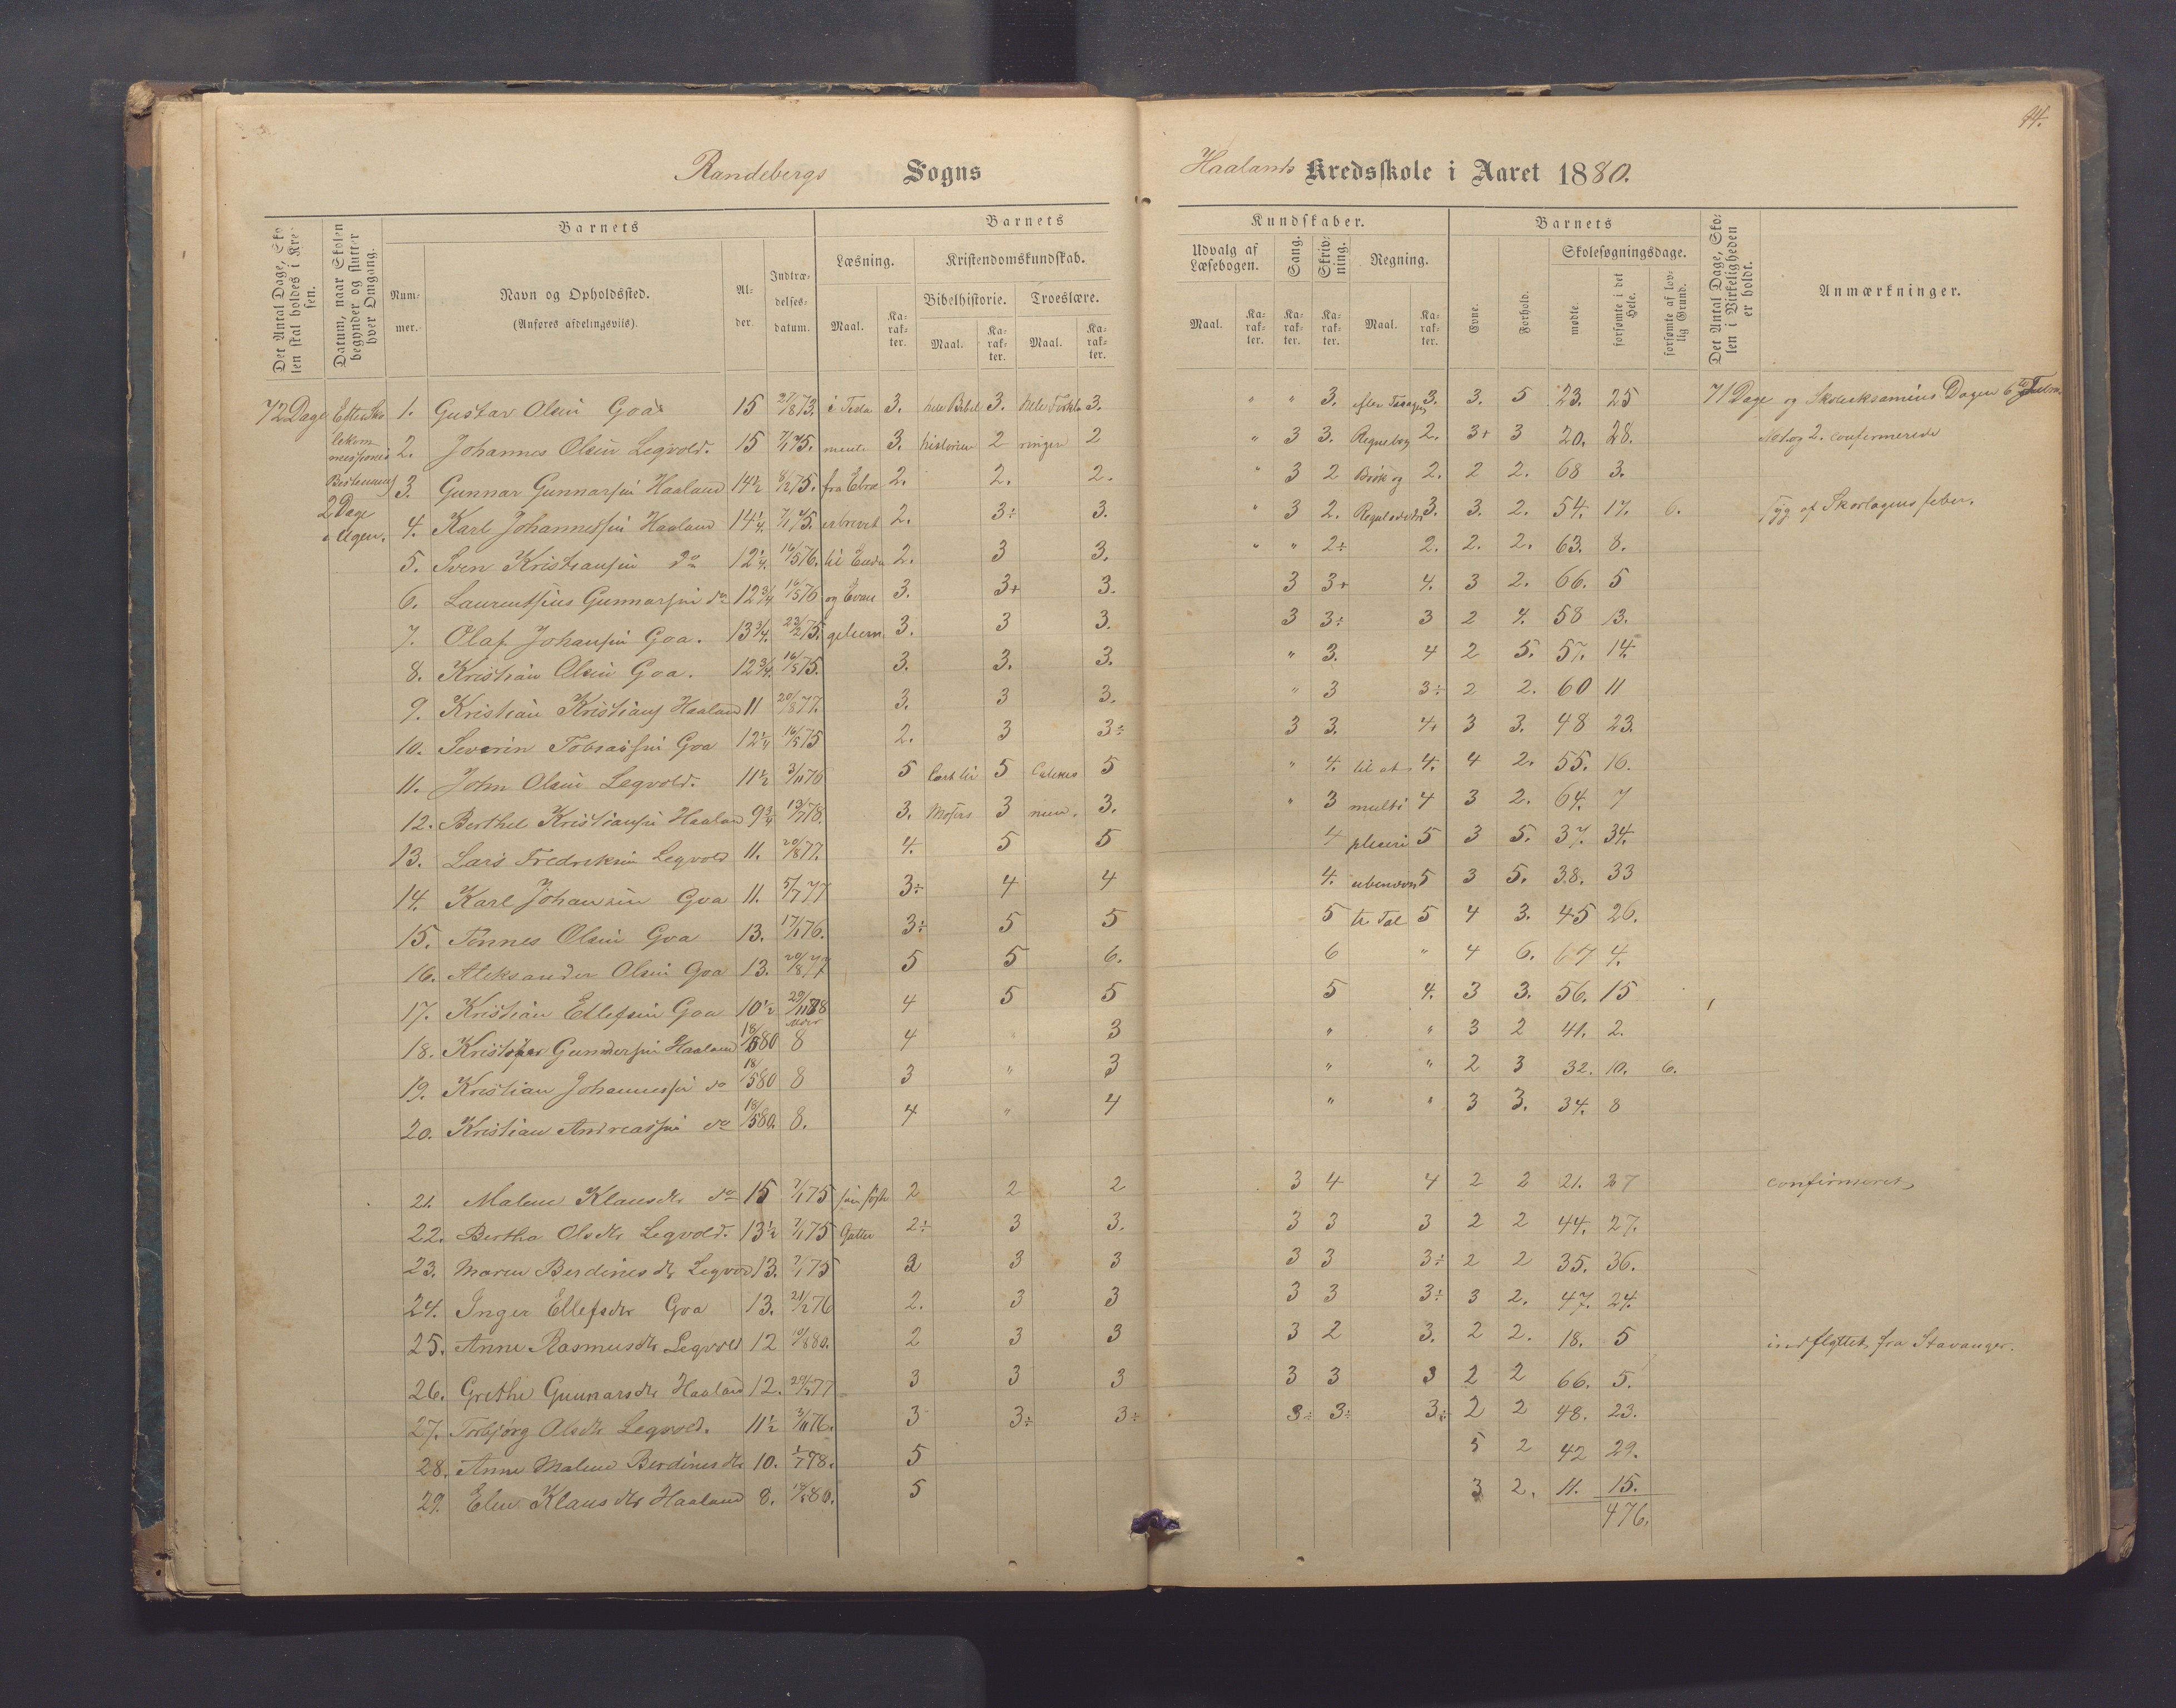 44.
Randebergs Sogns Haalands Kredsskole i Aaret 1880.
Det Antal Dage, Skolen skal holdes i Kredsen.
Datum, naar Skolen begynder og slutter hver Omgang.
Barnets
Nummer.
Navn og Opholdssted.
(Anføres afdelingsviis).
Alder.
Indtrædelsesdatum.
Barnets Kundskaber.
Læsning. Kristendomskundskab. Udvalg af Læsebogen. Sang. Skrivning. Regning.
Bibelhistorie. Troeslære.
Maal. Karakter. Maal. Karakter. Maal. Karakter. Maal. Karakter. Karakter. Karakter. Maal. Karakter.
Barnets
Evne. Forhold. Skolesøgningsdage.
mødte. forsømte i det Hele. forsømte af lovlig Grund.
Det Antal Dage, Skolen i Virkeligheden er holdt.
Anmærkninger.
72 Dage 1. Gustav Olsen Goa 15 27/8 73. i Testa 3. hele Bibel 3. hele Forkla 3. " " 3. 3. 3. 5 23. 25 71 Dage og Skoleeksamins Dagen 6te
2. Johannes Olsen Legvold. 15 7/1 75. ment. 3. historien 2 ringen 2 " 3 3. Regnebog 2. 3+ 3 20. 28. 1 og 2. confirmerede
3. Gunnar Gunnarsen Haaland 14½ 8/2 75. fra Ebræ 2. 2. 2. " 3 2 Brøk og 2. 2 2. 68 3.
2 Dage
4. Karl Johannessen Haaland 14¼. 7/1 75. erbrevet 2. 3÷ 3. " 3 2. 3. 3. 2. 54. 17. 6. Syg af Skarlagensfeber.
i Ugen.
5. Sven Kristiansen do 12¼. 16/5 76. til Enden 2. 3 3. " " 2÷ 2. 2. 2. 63. 8.
6. Laurentsius Gunnarsen do 12¾ 16/5 76 og Evan 3. 3+ 3. 3 3+ 4. 3 2. 66. 5
7. Olaf Johansen Goa. 13¾. 23/2 75. gelierne 3. 3 3. 3 3÷ 3 2 4. 58 13.
8. Kristian Olsen Goa. 12¾. 16/5 75. 3. 3. 3. " 3. 4 2 5. 57. 14.
9. Kristian Kristians Haaland 11 20/8 77. 3. 3 3. " 3 3÷ 2 2. 60 11
10. Severin Tobiassen Goa 12¼ 16/5 75 2. 3 3÷ 3 3. 4. 3 3. 48 23.
11. John Olsen Legvold. 11½ 3/11 76 5 5 5 " 4. til at 4. 4 2. 55. 16.
12. Berthel Kristiansen Haaland 9¾ 13/7 78. 3. Moses 3 3. " 3 multi 4 3 2. 64. 7
13. Lars Fredriksen Legvold 11. 20/8 77. 4. 5 5 4 pliceri 5 3 5. 37. 34.
14. Karl Johansen Goa 11. 5/7 77 3÷ 4 4 4. ubenævn 5 3 5. 38. 33
15. Tønnes Olsen Goa 13. 17/1 76. 3÷ 5 5 5 te Tal 5 4 3. 45 26.
16. Aleksander Olsen Goa 13. 20/8 77 5 5 6. 6 " 4 6. 67 4.
17. Kristian Ellefsen Goa 10½ 29/11 78 4 5 5 5 4. 3 3. 56. 15
18. Kristofer Gunnersen Haaland 18/5 80 8 4 3 " " 3 2 41. 2.
19. Kristian Johannessen do 18/5 80 8 3 " 3 " " 2 3 32. 10. 6.
20. Kristian Andreassen do 18/5 80. 8. 4 " 4 " " 3 3. 34. 8
21. Malene Klausdtr do 15 7/1 75 2 2 2 3 4 4 2 2 21. 27 confirmeret
22. Bertha Olsdtr Legvold. 13½ 7/1 75 2÷ 3 3. 3 3 3 2 2 44. 27.
23. Maren Berdinesdtr Legvold 13. 7/1 75 2 3 3 3 3 3÷ 2 2 35. 36.
24. Inger Ellefsdtr Goa 13. 21/2 76 2. 3 3 3 3 3÷ 3 2. 47. 24.
25. Anne Rasmusdtr Legvold 12 10/8 80. 2 3 3 3 2 3. 2 2. 18. 5 indflyttet fra Stavanger.
26. Grethe Gunnarsdtr Haaland 12. 77 3 3 3 3 3 3 2 2 66. 5.
27. Torbjørg Olsdtr Legvold. 11½ 3/11 76. 3 3÷ 3÷ 3÷ 3÷ 3÷ 2 2 48. 23.
28. Anne Malene Berdinesdtr 10. 1/7 78. 5 5 2 42 29.
29. Elen Klausdtr Haaland 8. 80. 5 3 2. 11. 15.
476.